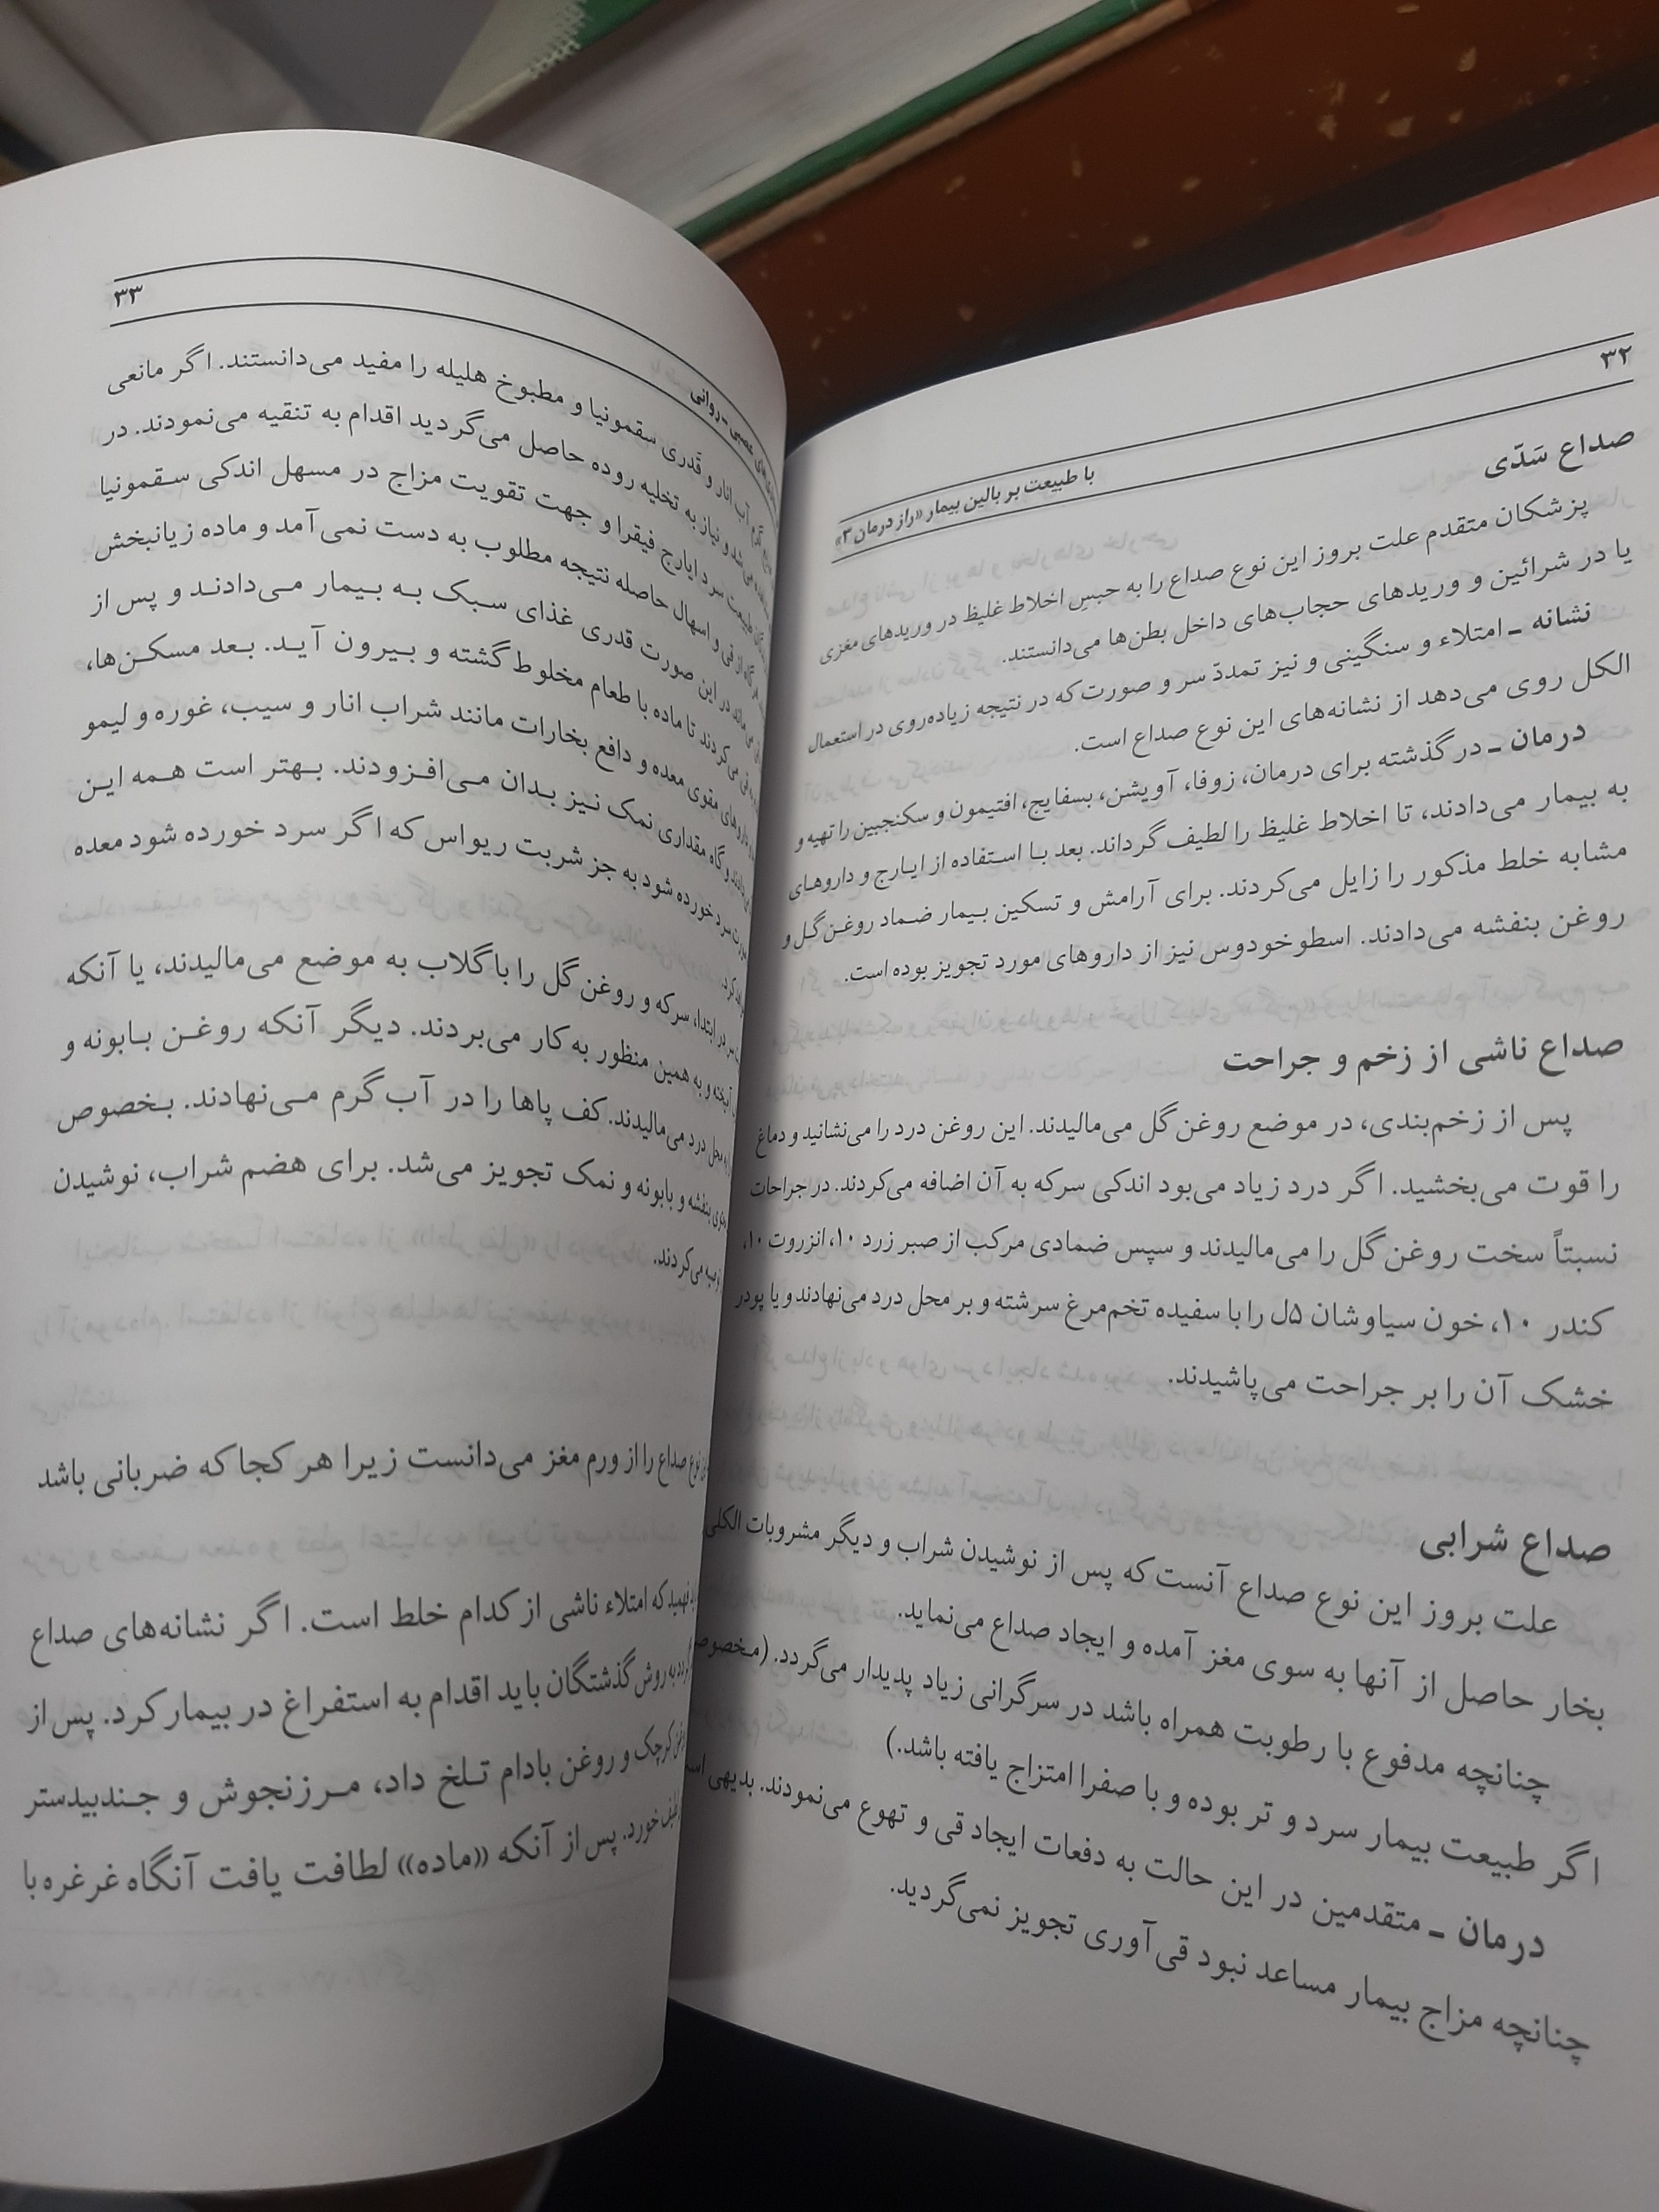 ۳۲
با طبیعت بر بالین بیمار «راز درمان ۳»
صداع سَدّی
پزشکان متقدم علت بروز این نوع صداع را به حبسِ اخلاط غلیظ در وریدهای مغزی
یا در شرائین و وریدهای حجاب‌های داخل بطن‌ها می‌دانستند.
نشانه ـ امتلاء و سنگینی و نیز تمددّ سر و صورت که در نتیجه زیاده‌روی در استعمال
الکل روی می‌دهد از نشانه‌های این نوع صداع است.
درمان ـ در گذشته برای درمان، زوفا، آویشن، بسفایج، افتیمون و سکنجبین را تهیه و
به بیمار می‌دادند، تا اخلاط غلیظ را لطیف گرداند. بعد با استفاده از ایارج و داروهای
مشابه خلط مذکور را زایل می‌کردند. برای آرامش و تسکین بیمار ضماد روغن گل و
روغن بنفشه می‌دادند. اسطوخودوس نیز از داروهای مورد تجویز بوده است.
صداع ناشی از زخم و جراحت
پس از زخم‌بندی، در موضع روغن گل می‌مالیدند. این روغن درد را می‌نشانید و دماغ
را قوت می‌بخشید. اگر درد زیاد می‌بود اندکی سرکه به آن اضافه می‌کردند. در جراحات
نسبتاً سخت روغن گل را می‌مالیدند و سپس ضمادی مرکب از صبر زرد ۱۰، انزروت ۱۰،
کندر ۱۰، خون سیاوشان ۵ل را با سفیده تخم‌مرغ سرشته و بر محل درد می‌نهادند و یا پودر
خشک آن را بر جراحت می‌پاشیدند.
صداع شرابی
علت بروز این نوع صداع آنست که پس از نوشیدن شراب و دیگر مشروبات الکلی
بخار حاصل از آنها به سوی مغز آمده و ایجاد صداع می‌نماید.
چنانچه مدفوع با رطوبت همراه باشد در سرگرانی زیاد پدیدار می‌گردد. (مخصوصـ
اگر طبیعت بیمار سرد و تر بوده و با صفرا امتزاج یافته باشد.)
درمان ـ متقدمین در این حالت به دفعات ایجاد قی و تهوع می‌نمودند. بدیهی است
چنانچه مزاج بیمار مساعد نبود قی‌آوری تجویز نمی‌گردید.
عصبی ـ روانی
۳۳
آب انار و قَدری سقمونیا و مطبوخ هلیله را مفید می‌دانستند. اگر مانعی
نیاز به تخلیه روده حاصل می‌گردید اقدام به تنقیه می‌نمودند. در
طبیعت سرد ایارج فیقرا و جهت تقویت مزاج در مسهل اندکی سقمونیا
از قی و اسهال حاصله نتیجه مطلوب به دست نمی‌آمد و ماده زیانبخش
در این صورت قدری غذای سبک به بیمار می‌دادند و پس از
می‌کردند تا ماده با طعام مخلوط گشته و بیرون آید. بعد مسکن‌ها،
داروهای مقوی معده و دافع بخارات مانند شراب انار و سیب، غوره و لیمو
و گاه مقداری نمک نیز بدان می‌افزودند. بهتر است همه این
سرد خورده شود به جز شربت ریواس که اگر سرد خورده شود معده
کرد.
در ابتدا، سرکه و روغن گل را با گلاب به موضع می‌مالیدند، یا آنکه
آمیخته و به همین منظور به کار می‌بردند. دیگر آنکه روغن بابونه و
محل درد می‌مالیدند. کف پاها را در آب گرم می‌نهادند. بخصوص
بنفشه و بابونه و نمک تجویز می‌شد. برای هضم شراب، نوشیدن
می‌کردند.
نوع صداع را از ورم مغز می‌دانست زیرا هر کجا که ضربانی باشد
فهمید که امتلاء ناشی از کدام خلط است. اگر نشانه‌های صداع
به روش گذشتگان باید اقدام به استفراغ در بیمار کرد. پس از
کرچک و روغن بادام تلخ داد، مرزنجوش و جندبیدستر
خورد. پس از آنکه «ماده» لطافت یافت آنگاه غرغره با